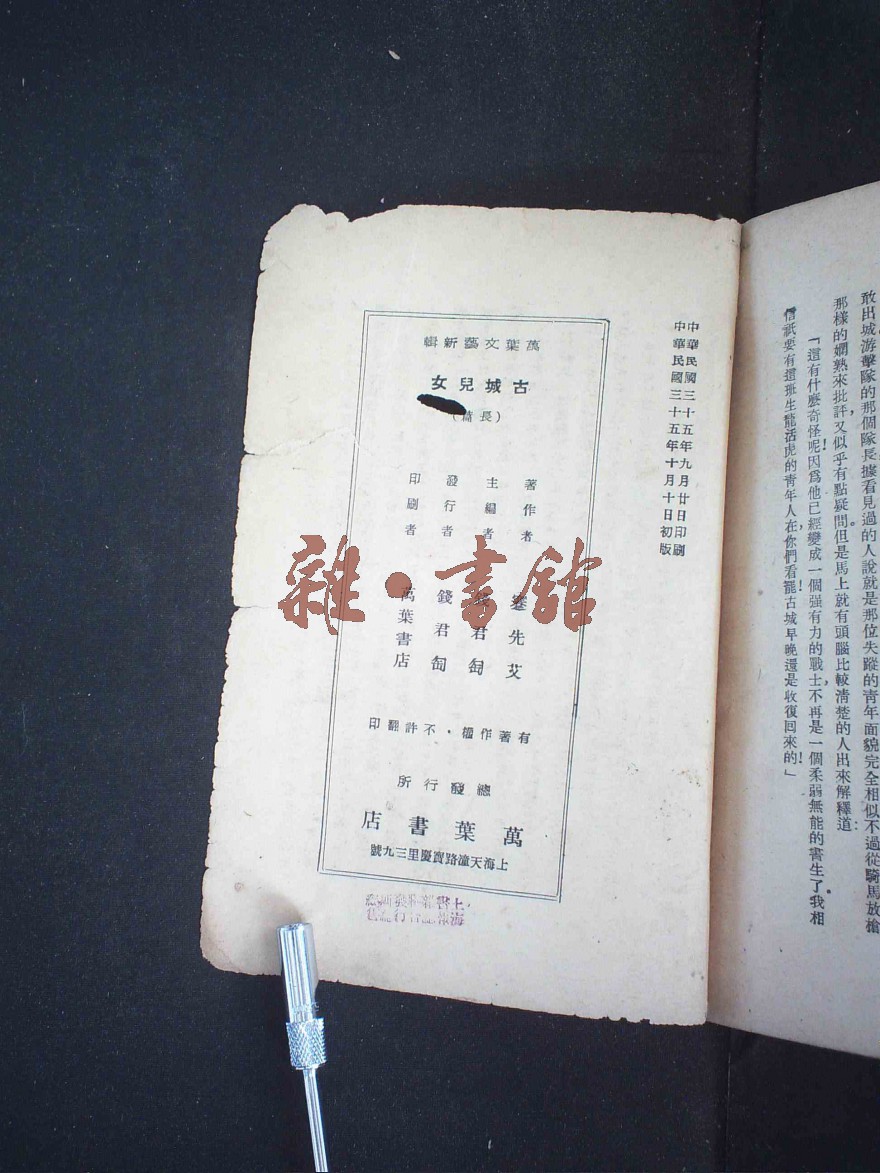 敢出城游擊隊的那個隊長據看見過的人說就是那位失蹤的靑年面貌完全相似不過從騎馬放槍
那樣的嫻熟來批評又似乎有點疑問但是馬上就有頭腦比較淸楚的人出來解釋道：
「這有什麼奇怪呢因爲他已經變成一個强有力的戰士不再是一個柔弱無能的書生了我相
信祇要有這班生龍活虎的靑年人在，你們看罷！古城早晚還是收復回來的！」
中華民國三十五年九月廿日印刷
中華民國三十五年十月十日初版
萬葉文藝新輯
古城兒女
（長篇）
著作者 蹇先艾
主編者 錢君匋
發行者 錢君匋
印刷者 萬葉書店
有著作權・不許翻印
總發行所
萬葉書店
上海天潼路寶慶里三九號
雜・書館